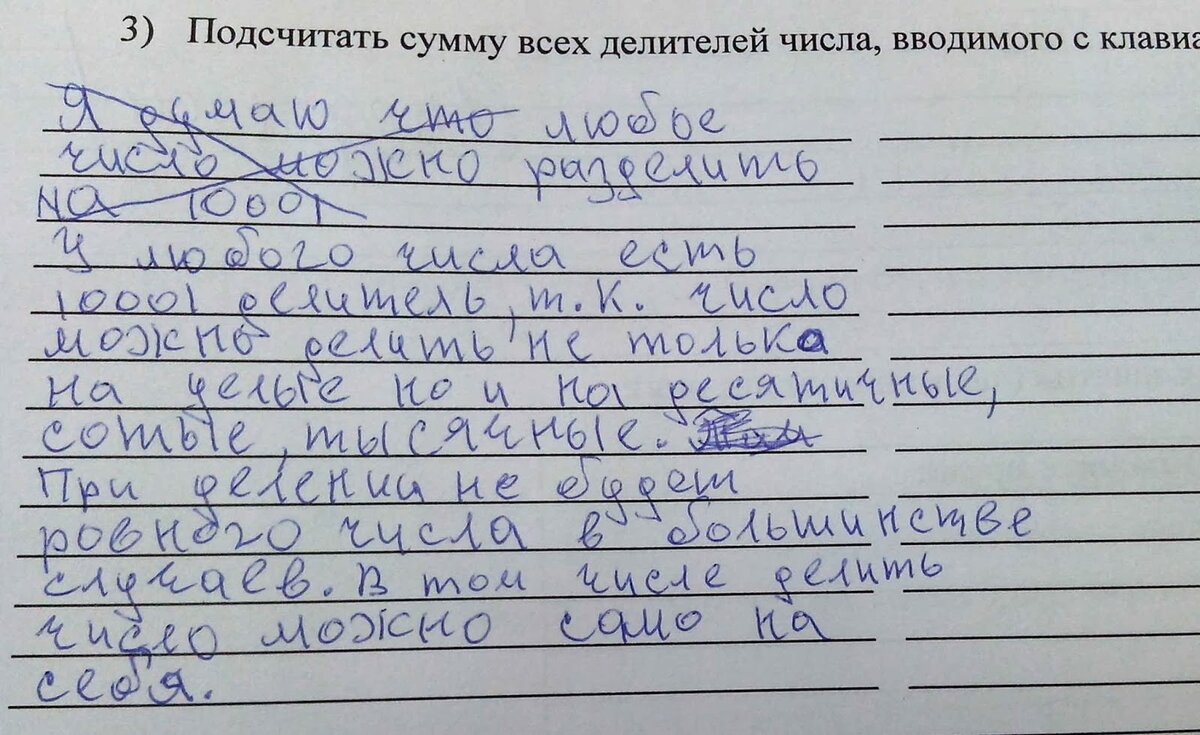 3) Подсчитать сумму всех делителей числа, вводимого с клавиа
Я думаю что любое
число можно разделить
на 10001
У любого числа есть
10001 делитель, т.к. число
можно делить не только
на целые но и на десятичные,
сотые, тысячные.
При делении не будет
ровного числа в большинстве
случаев. В том числе делить
число можно само на
себя.